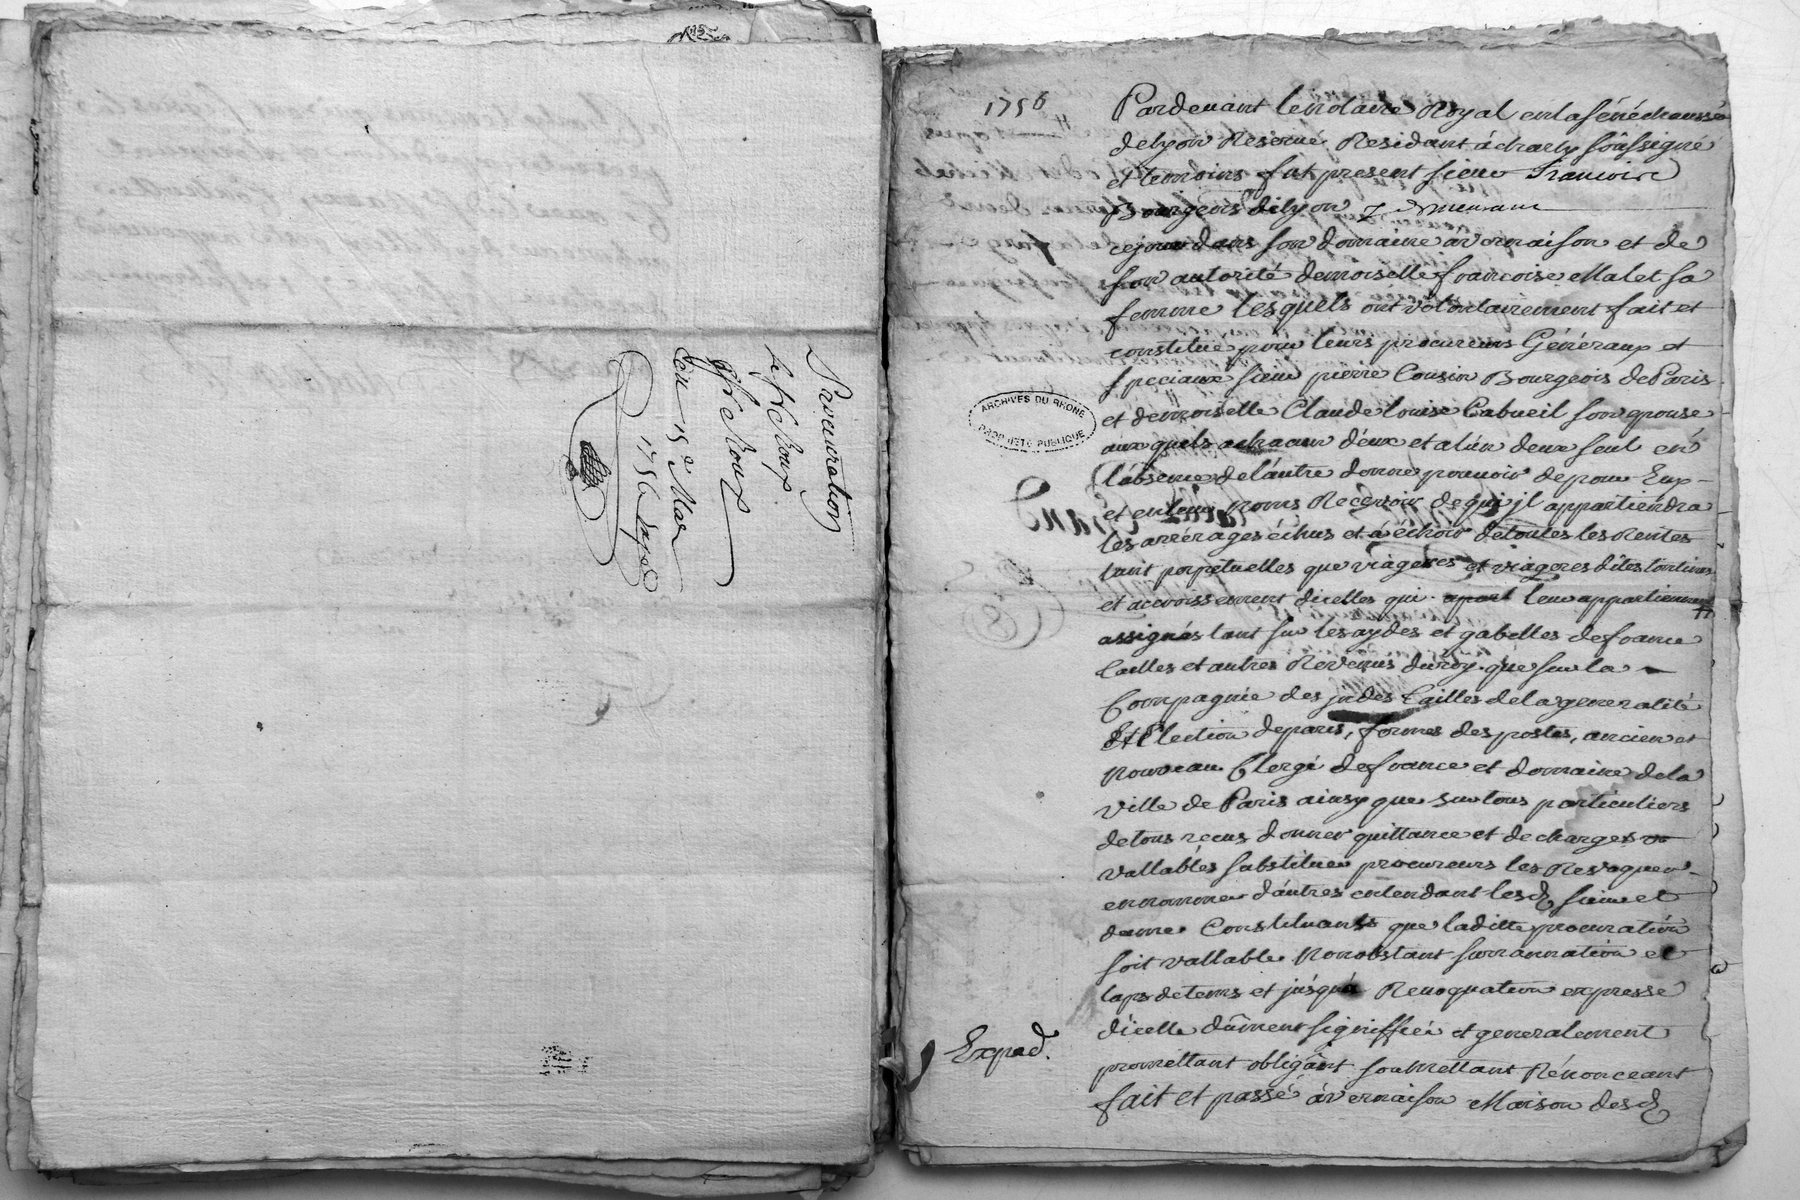 Procuration
Le Sr Roux
Du 15e Mars
1756
1756
Pardevant le notaire Royal en la sénéchaussé
de lyon Reservé Residant à charly soussigné
et temoins fut present sieur
Bourgeois de lyon
ce jour dans son domaine à vernaison et de
son autorité demoiselle francoise Malet sa
femme lesquels ont volontairement fait et
constitue pour leurs procureurs Généraux et
speciaux sieur pierre Cousin Bourgeois de Paris
et demoiselle Claude louise Cabueil son epouse
aux quels a chacun d'eux et a l'un deux seul en
l'absence de l'autre donne pouvoir de pour Eux
et en leur noms Recevoir de qui jl appartiendra
les arrérages échus et à échoir de toutes les Rentes
tant perpetuelles que viageres et viageres dites tontines
et accroissement d'icelles qui leur appartiennent
assignés tant sur les aydes et gabelles de france
tailles et autres Revenus du roy que sur la
Compagnie des jndes tailles de la generalité
Et Election de paris, fermes des postes, ancien et
Nouveau Clergé de france et domaine de la
ville de Paris ainsy que sur tous particuliers
de tous recus donner quittance et decharges
vallables substituer procureurs les Revoquer
en nommer d'autres entendant lesd. sieur et
dame Constituants que laditte procuration
soit vallable Nonobstant surrannation et
laps de tems et jusqu'a Revoquation expresse
d'icelle dûment signiffiée et generalement
promettant obligeant soumettant Rénonceant
Exped.
fait et passé à vernaison Maison desd.
ARCHIVES DU RHONE
PROPRIÉTÉ PUBLIQUE